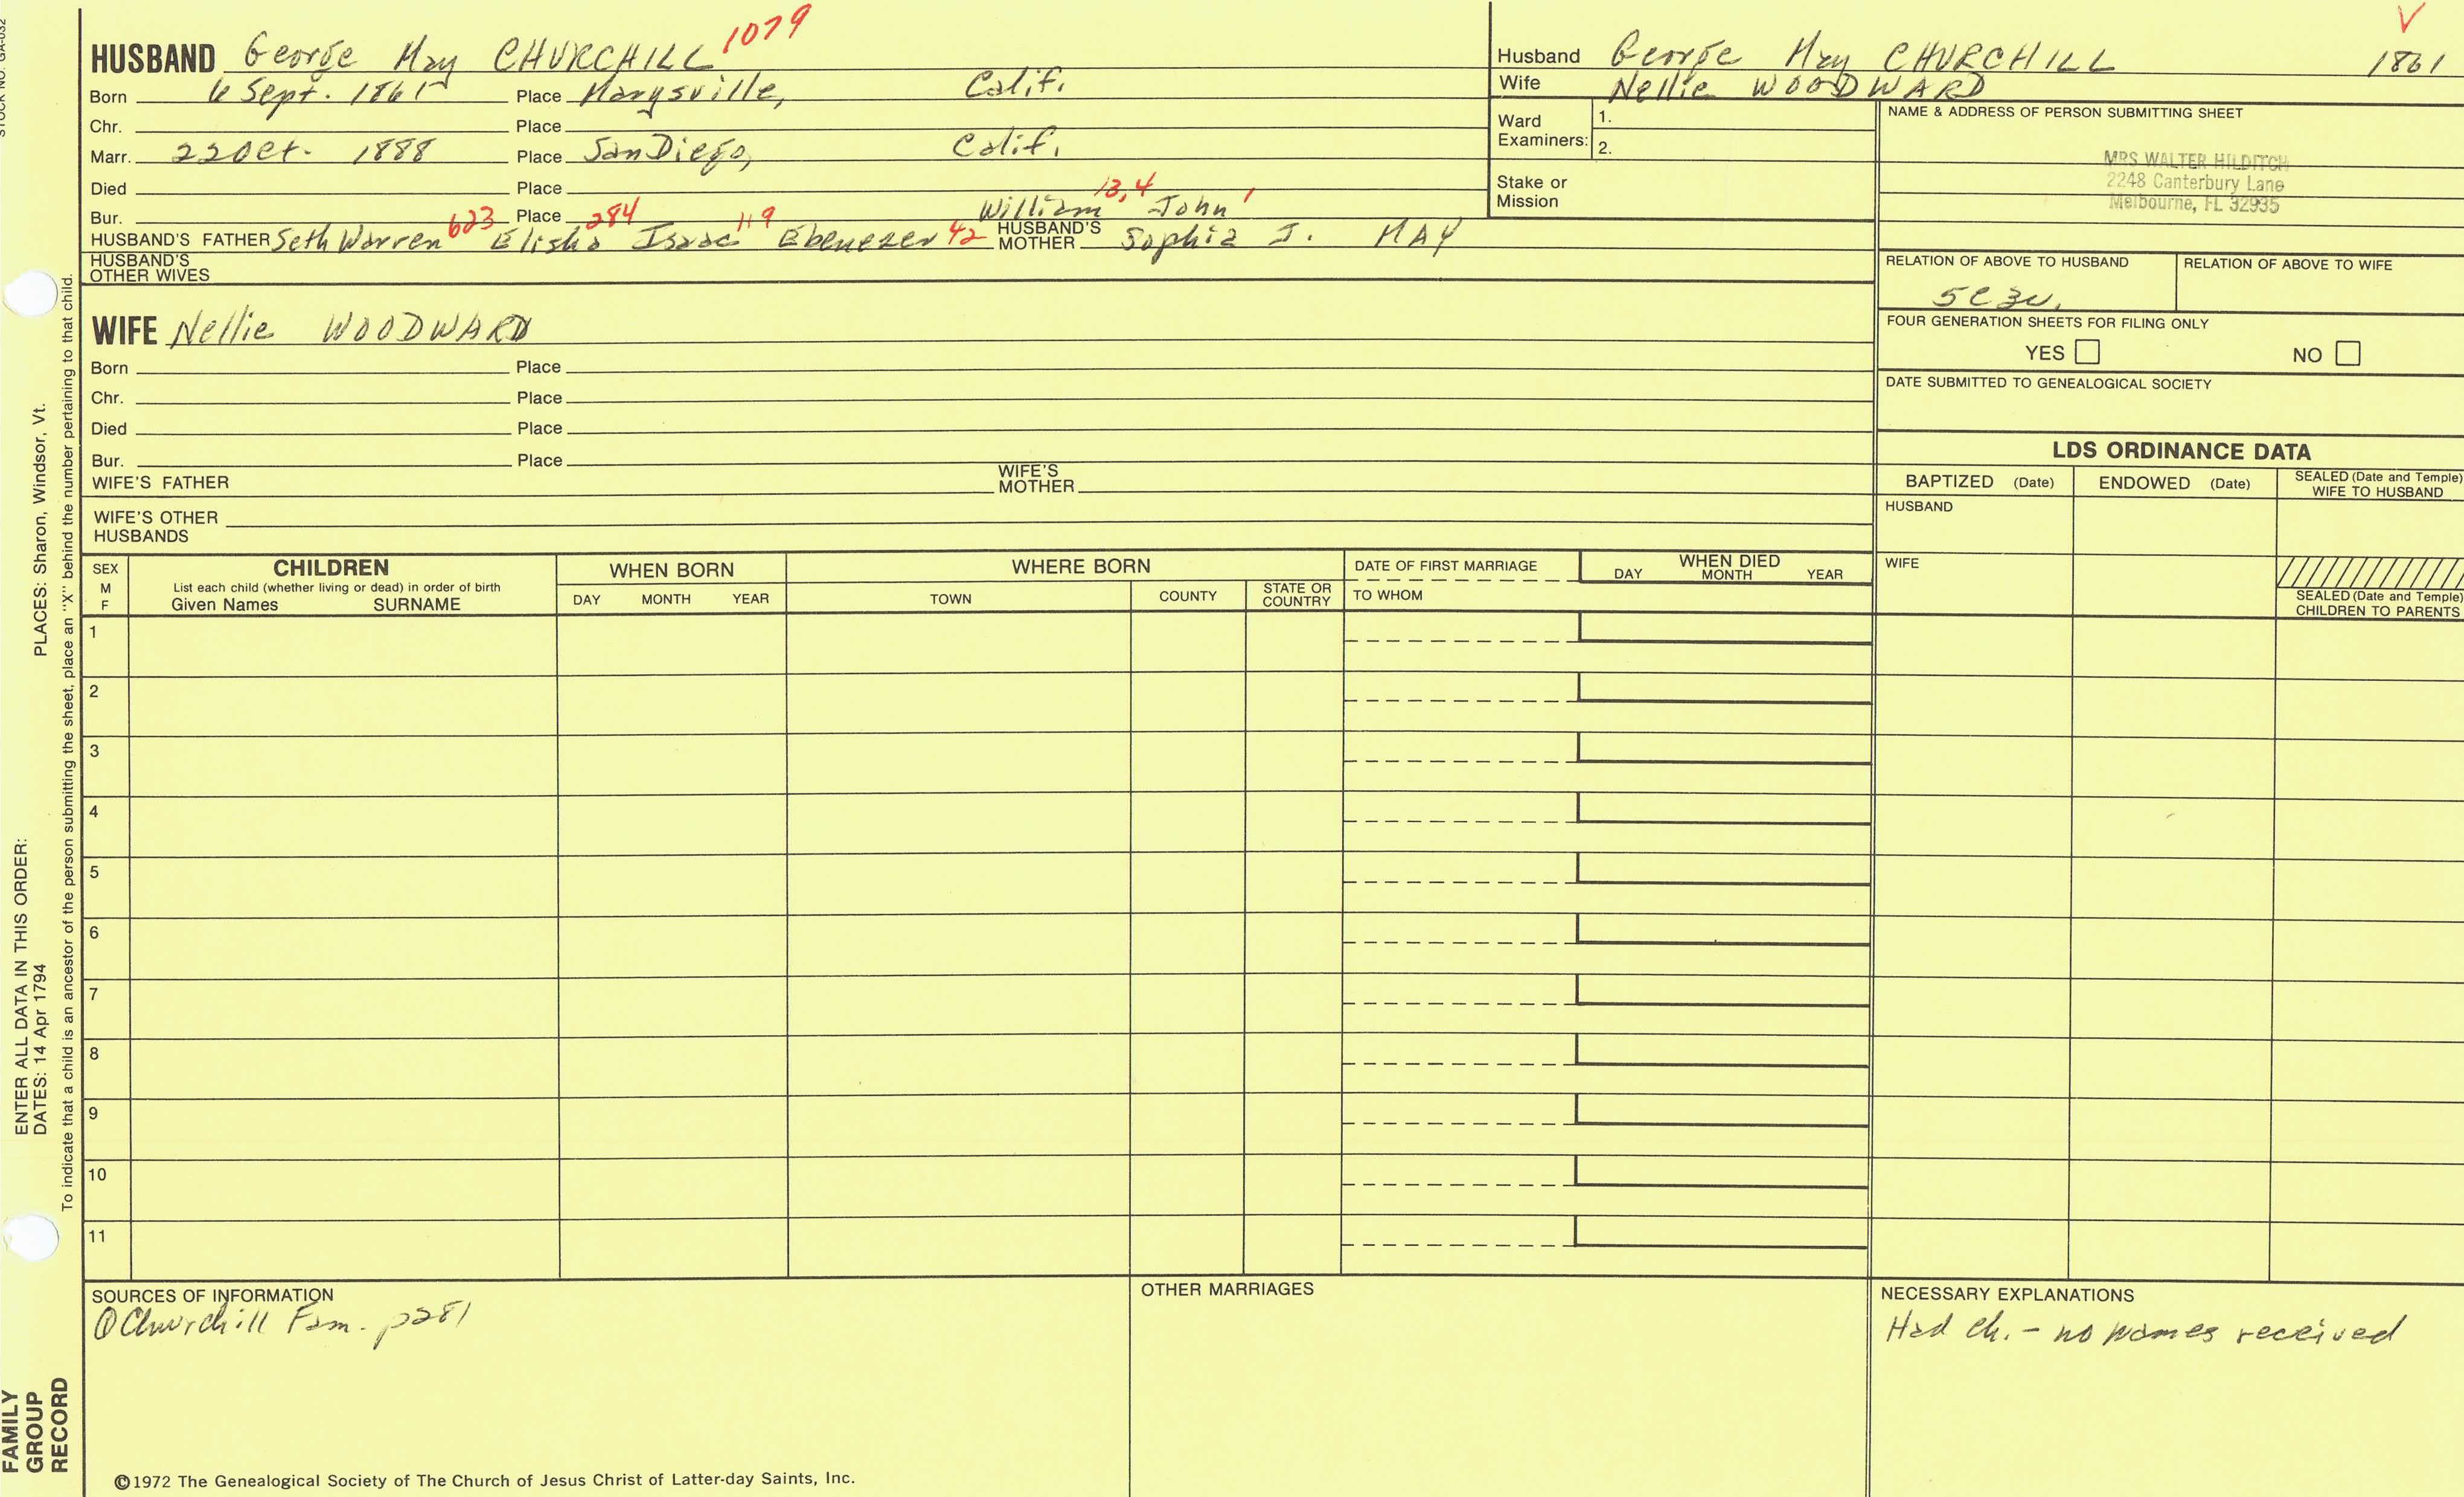 STOCK NO. GA-032
HUSBAND George May CHURCHILL 1079
Born 6 Sept. 1861 Place Marysville, Calif.
Chr. Place
Marr. 22 Oct. 1888 Place San Diego, Calif.
Died Place
Bur. Place
William 13,4 John 1
HUSBAND'S FATHER Seth Warren 623 Elisha 284 Isaac 119 Ebenezer 42 HUSBAND'S MOTHER Sophia J. MAY
HUSBAND'S OTHER WIVES
WIFE Nellie WOODWARD
Born Place
Chr. Place
Died Place
Bur. Place
WIFE'S FATHER WIFE'S MOTHER
WIFE'S OTHER HUSBANDS
V
Husband George May CHURCHILL 1861
Wife Nellie WOODWARD
Ward Examiners: 1.
2.
Stake or Mission
NAME & ADDRESS OF PERSON SUBMITTING SHEET
MRS WALTER HILDITCH
2248 Canterbury Lane
Melbourne, FL 32935
RELATION OF ABOVE TO HUSBAND RELATION OF ABOVE TO WIFE
5C3w.
FOUR GENERATION SHEETS FOR FILING ONLY
YES NO
DATE SUBMITTED TO GENEALOGICAL SOCIETY
LDS ORDINANCE DATA
BAPTIZED (Date) ENDOWED (Date) SEALED (Date and Temple) WIFE TO HUSBAND
HUSBAND
WIFE
SEALED (Date and Temple) CHILDREN TO PARENTS
SEX M F
CHILDREN
List each child (whether living or dead) in order of birth
Given Names SURNAME
WHEN BORN
DAY MONTH YEAR
WHERE BORN
TOWN COUNTY STATE OR COUNTRY
DATE OF FIRST MARRIAGE
TO WHOM
WHEN DIED
DAY MONTH YEAR
1
2
3
4
5
6
7
8
9
10
11
SOURCES OF INFORMATION
① Churchill Fam. p281
OTHER MARRIAGES
NECESSARY EXPLANATIONS
Had ch. - no names received
©1972 The Genealogical Society of The Church of Jesus Christ of Latter-day Saints, Inc.
FAMILY GROUP RECORD
ENTER ALL DATA IN THIS ORDER:
DATES: 14 Apr 1794 PLACES: Sharon, Windsor, Vt.
To indicate that a child is an ancestor of the person submitting the sheet, place an "X" behind the number pertaining to that child.